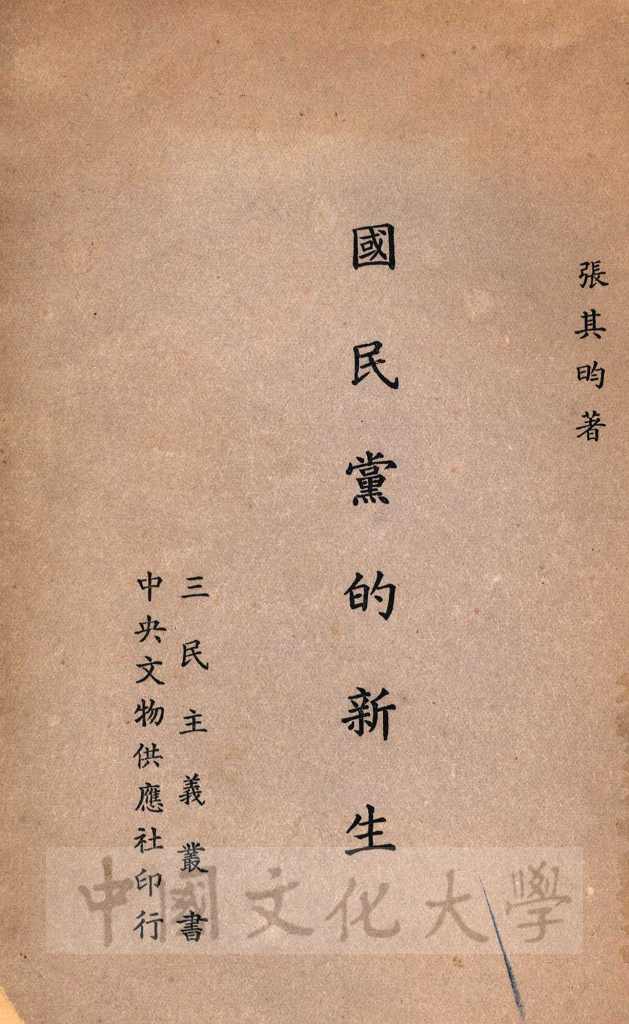 張其昀著
國民黨的新生
三民主義叢書
中央文物供應社印行
中國文化大學